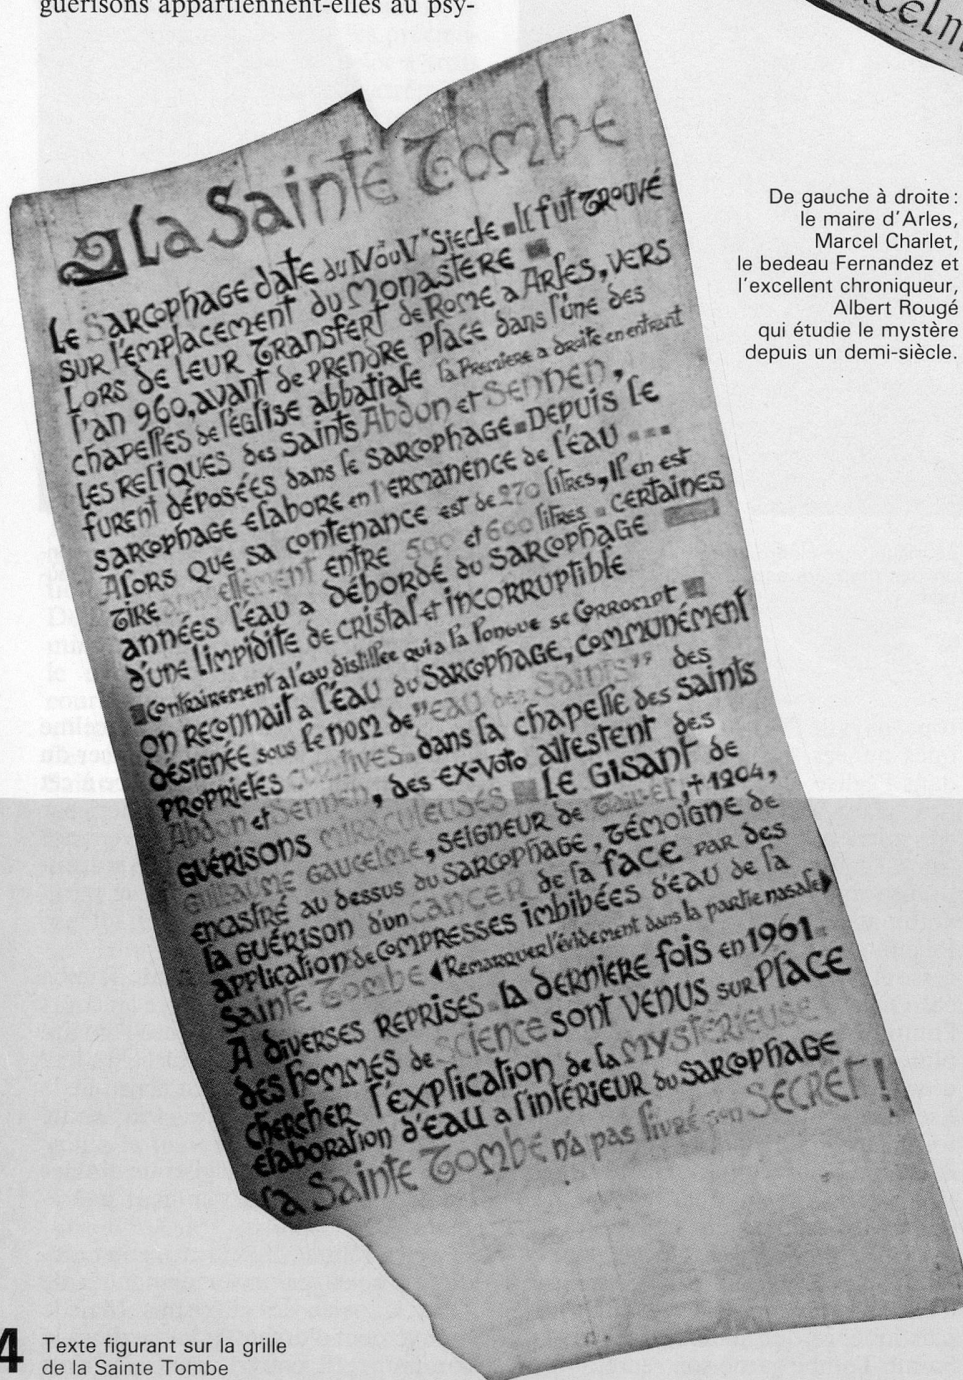 guérisons appartiennent-elles au psy-
La Sainte Tombe
Le Sarcophage date du IVou V° Siecle Il fut trouvé
sur l'emplacement du Monastère
Lors de leur transfert de Rome a Arles, vers
l'an 960, avant de prendre place dans l'une des
chapelles de l'église abbatiale la Premiere a droite en entrant
les reliques des Saints Abdon et Sennen,
furent déposées dans le sarcophage. Depuis le
sarcophage elabore en permanence de l'eau ...
Alors que sa contenance est de 270 litres, Il en est
tire annuellement entre 500 et 600 litres. certaines
années l'eau a débordé du sarcophage
d'une limpidite de cristal et incorruptible
Contrairement a l'eau distillée qui a la longue se Corrompt
on reconnait a l'eau du Sarcophage, communément
désignée sous le nom de "eau des Saints" des
proprietes curatives. dans la chapelle des saints
Abdon et Sennen, des ex-voto attestent des
guérisons miraculeuses Le Gisant de
Guillaume Gaucelme, seigneur de Taillet, † 1204,
encastré au dessus du Sarcophage, témoigne de
la guérison d'un cancer de la face par des
application de compresses imbibées d'eau de la
Sainte Tombe (Remarquer l'évidement dans la partie nasale)
A diverses reprises. la dernière fois en 1961.
des hommes de science sont venus sur place
chercher l'explication de la mystérieuse
élaboration d'eau a l'intérieur du sarcophage
la Sainte Tombe n'a pas livré son SECRET !
De gauche à droite :
le maire d'Arles,
Marcel Charlet,
le bedeau Fernandez et
l'excellent chroniqueur,
Albert Rougé
qui étudie le mystère
depuis un demi-siècle.
4
Texte figurant sur la grille
de la Sainte Tombe